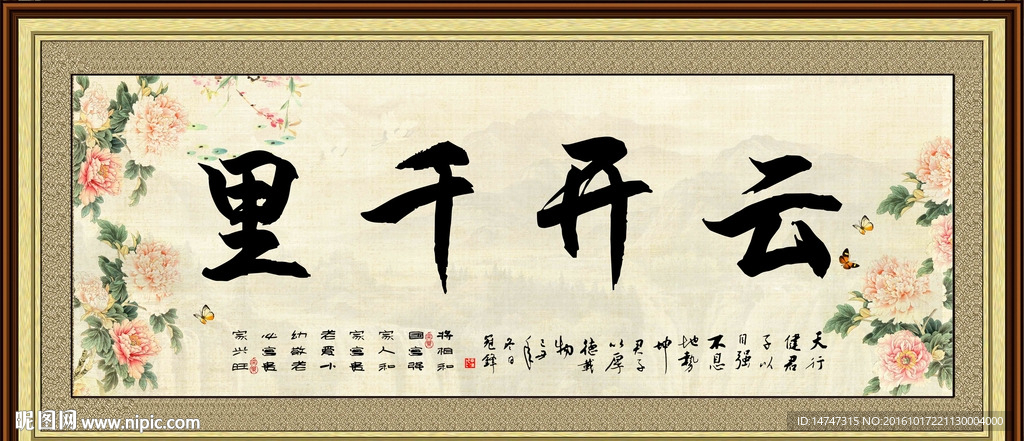 云开千里
天行
健君
子以
自强
不息
地势
坤
君子
以厚
德载
物
冬日
将相和
家人和
家富贵
老爱小
幼敬老
必富贵
家兴旺
昵图网 www.nipic.com
ID:14747315 NO:20161017221130004000